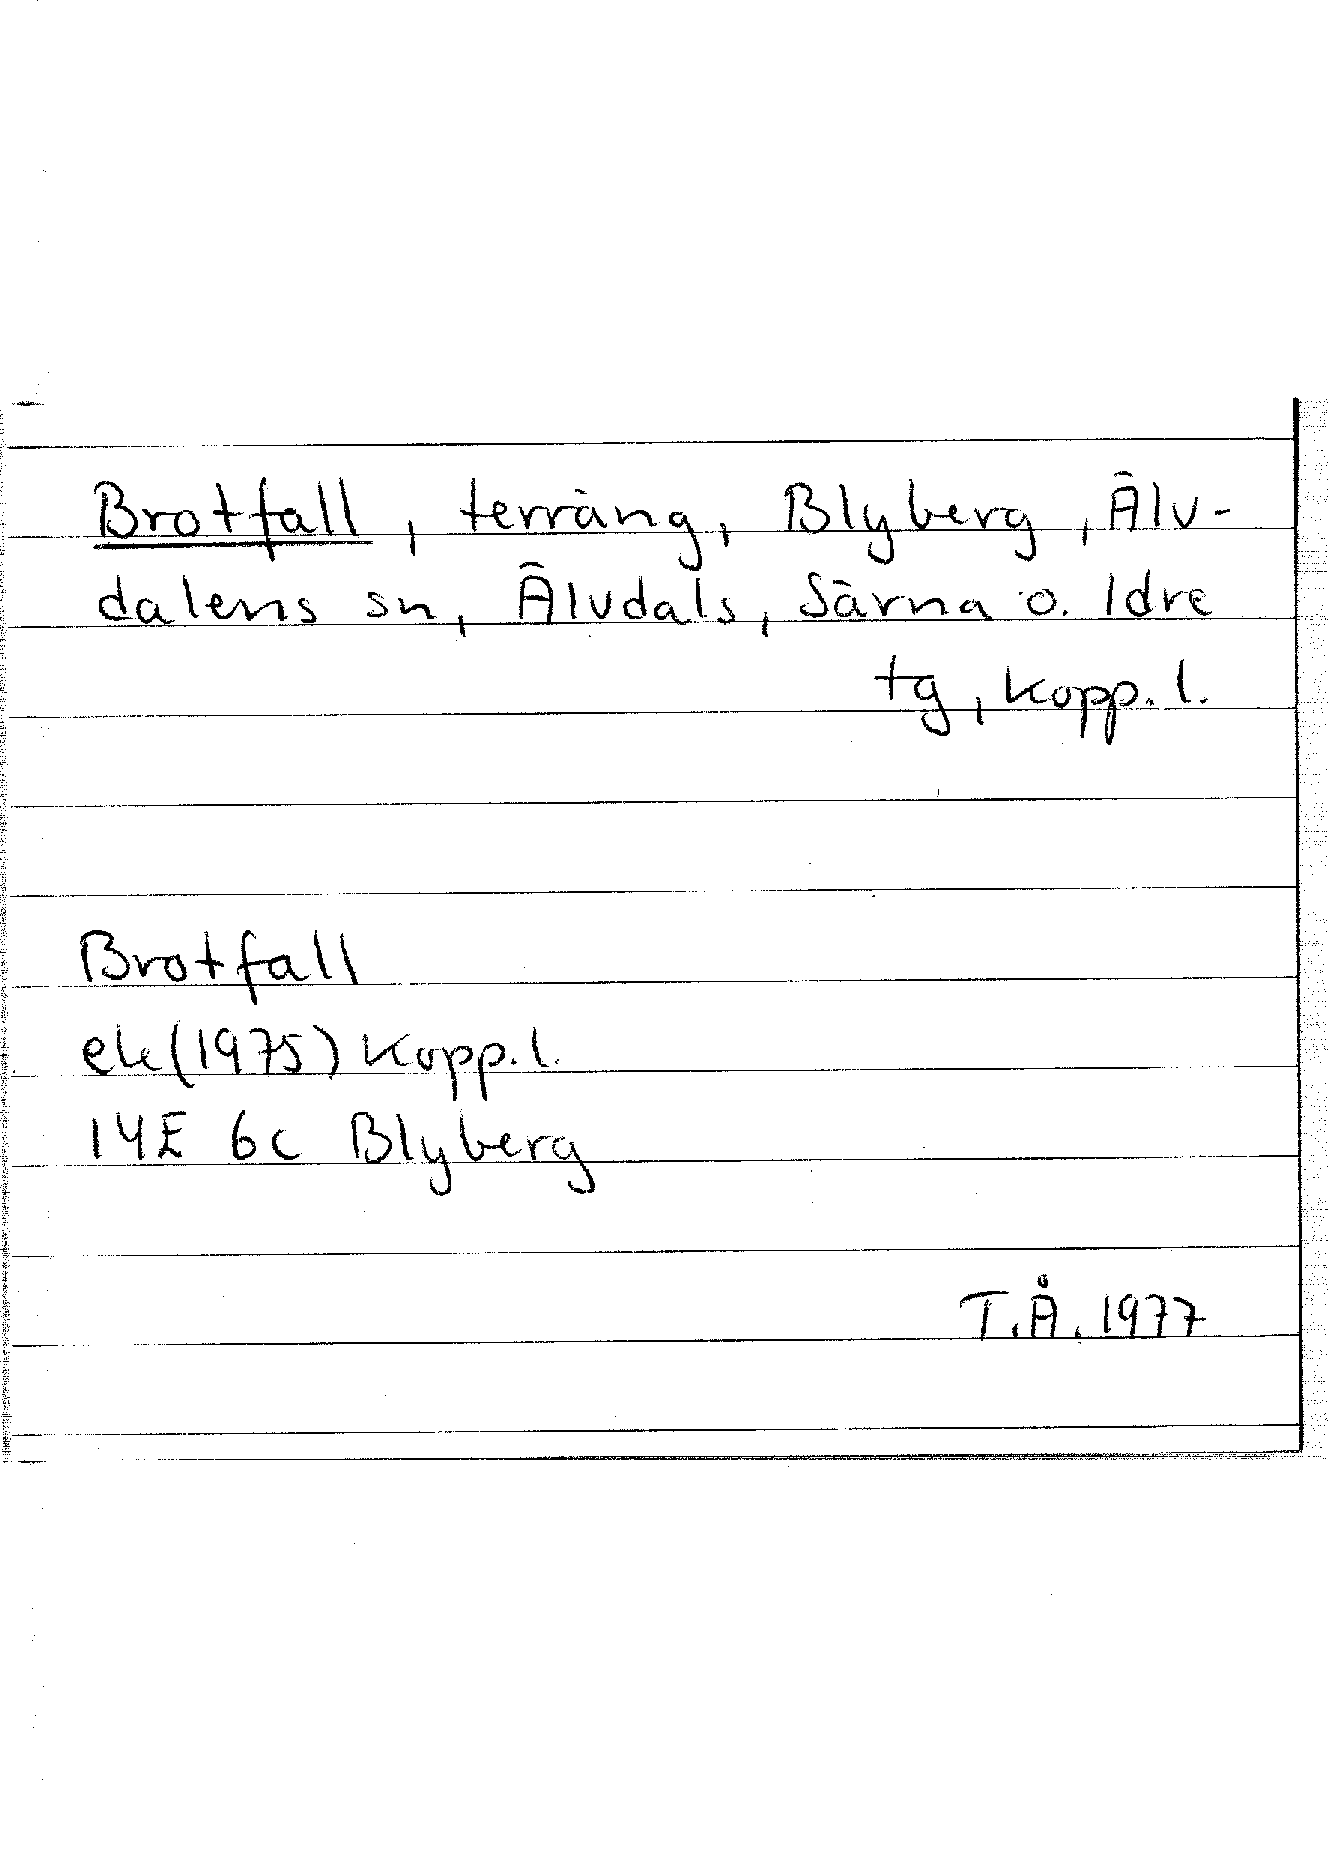 Brotfall, terräng, Blyberg, Älv-
dalens sn, Älvdals, Särna o. Idre
tg, Kopp. l.
Brotfall
ek (1975) Kopp. l.
14E 6c Blyberg
T.Å. 1977